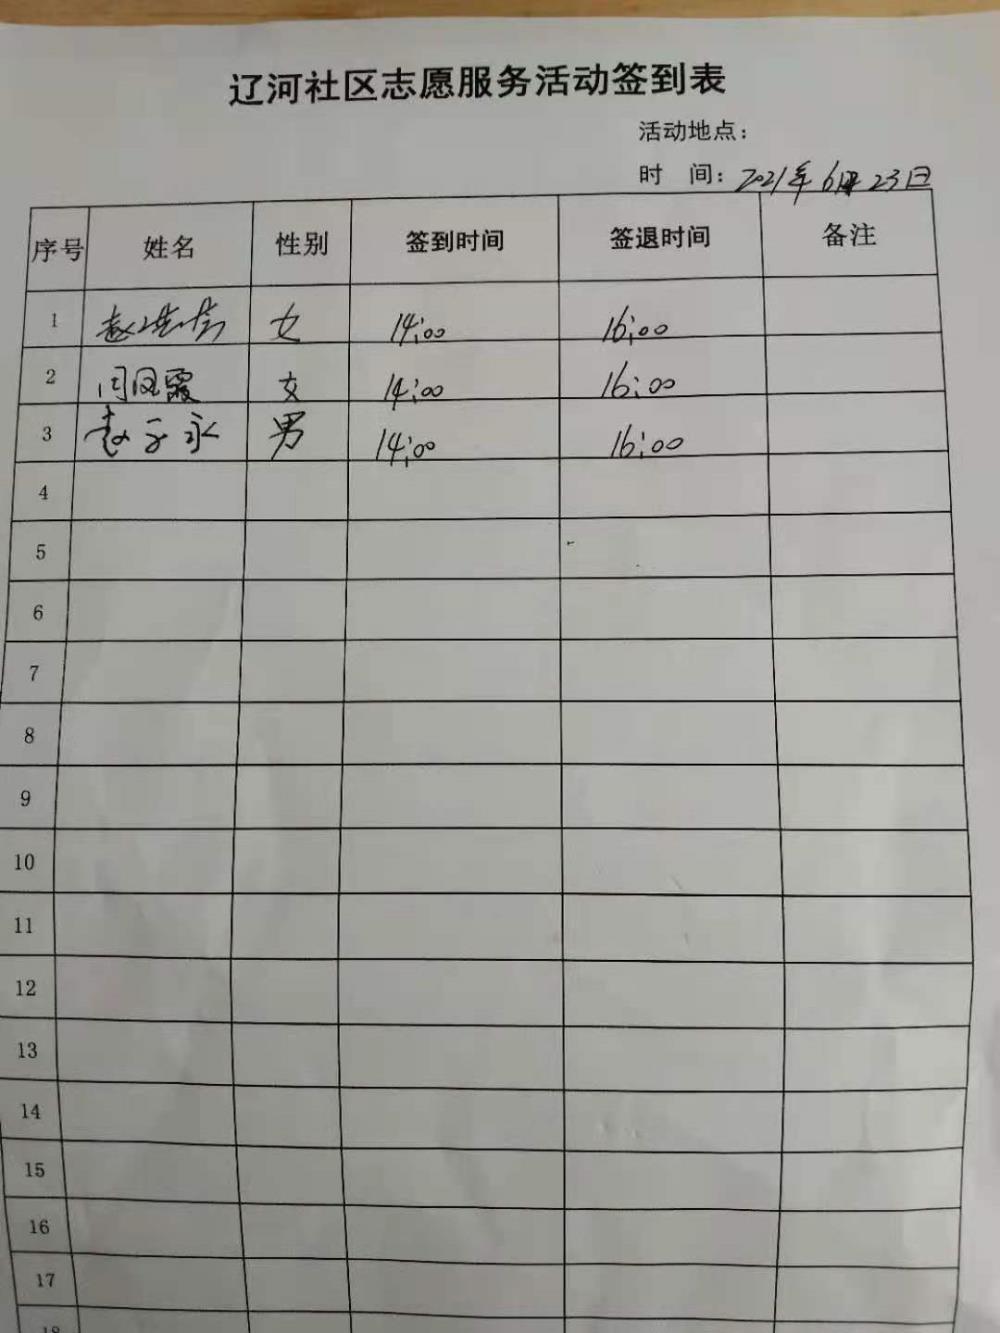 辽河社区志愿服务活动签到表
活动地点：
时 间：2021年6月23日
序号 姓名 性别 签到时间 签退时间 备注
1 赵 女 14:00 16:00
2 闫凤霞 女 14:00 16:00
3 赵子永 男 14:00 16:00
4
5
6
7
8
9
10
11
12
13
14
15
16
17
18